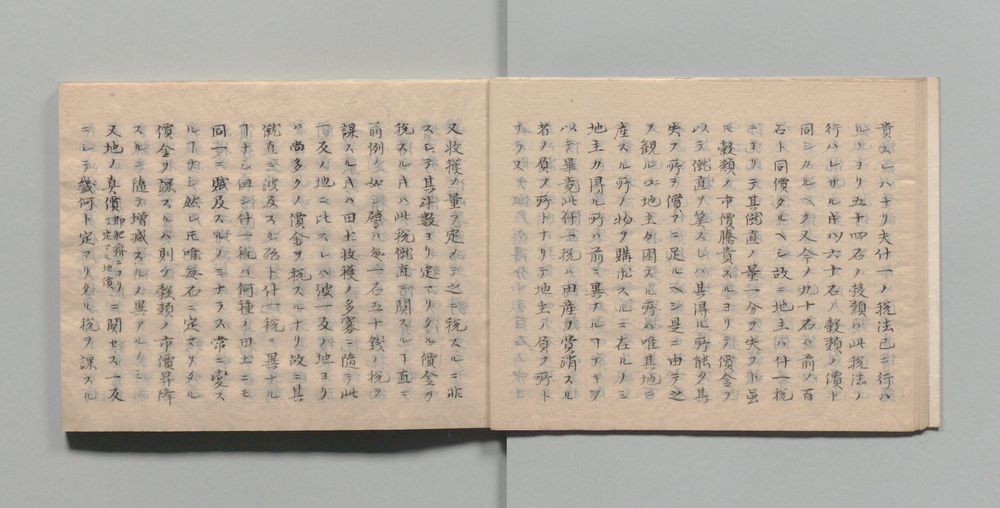 貴クレハナリ夫什一ノ税法已ニ行ハ
ルヽヨリ五十四名ノ穀類ハ此税法ノ
行ハレサル片ハ六十石ノ穀類ノ價ト
同シカルヘク又今ノ九十石ハ前ノ百
石ト同價タルヘシ故ニ地主ハ什一税
ニヨリテ其僦直ノ量一分ヲ失フト雖
氏穀類ノ市價騰貴スルヨリテ價金ヲ
以テ僦直ヲ算スレハ其得ル所能ク其
失フ所ヲ償フニ足ルヘシ是ニ由テ之
ヲ観レハ地主ノ困スル所ハ唯其地ヨリ
産スル所ノ物ヲ購求スルニ在ルノミ
地主カ得ル所ハ前ニ異ナルヿナキヲ
以テ畢竟此什一税ハ田産ヲ費消スル
者ノ負フ所トナリテ地主ノ負フ所ト
ナラス
又收獲ノ量ヲ定メテ之ニ税スルニ非
スシテ其石数ヨリ定マリタル價金ヲ
税スル片ハ此税僦直ニ関スルヿ直ニ
前例ノ如シ譬ハ毎一石五十錢ノ税ヲ
課スル片ハ田土收獲ノ多寡ニ隨テ此
一反ノ地ニ比スレハ彼一反ノ地ヨリ
ハ尚多クノ價金ヲ税スルナリ故ニ其
僦直ニ波及スル殆ト什一税ニ異ナル
ヿナシ但什一税ハ何種ノ田土ニモ
同一ニ賦及スルノミナラス常ニ變ス
ルヿナシ然レ氏唯毎石ニ定マリタル
價金ヲ課スルハ則チ穀類ノ市價昇降
スルニ隨テ増減スルノ異アルノミ
又地ノ真價即肥瘠ニヨリ定ル地價ニ関セス一反
ニシテ幾何ト定マリタル税ヲ課スル